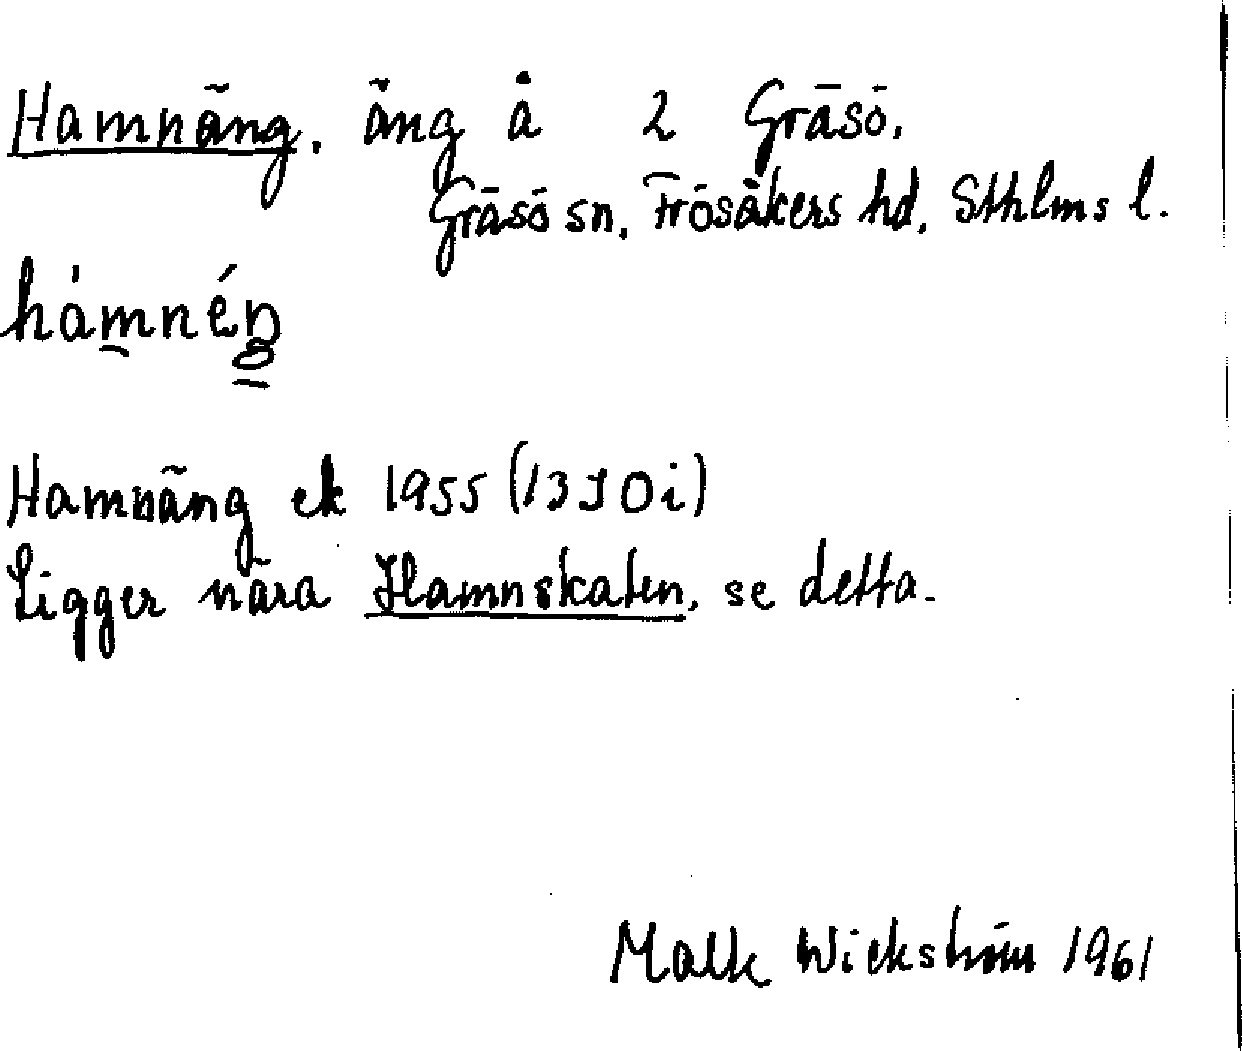 Hamnäng, äng å 2 Gräsö.
Gräsö sn, Frösåkers hd, Sthlms l.
hàmnéŋ
Hamnäng ek 1955 (13J0i)
Ligger nära Hamnskaten, se detta.
Wickström 1961